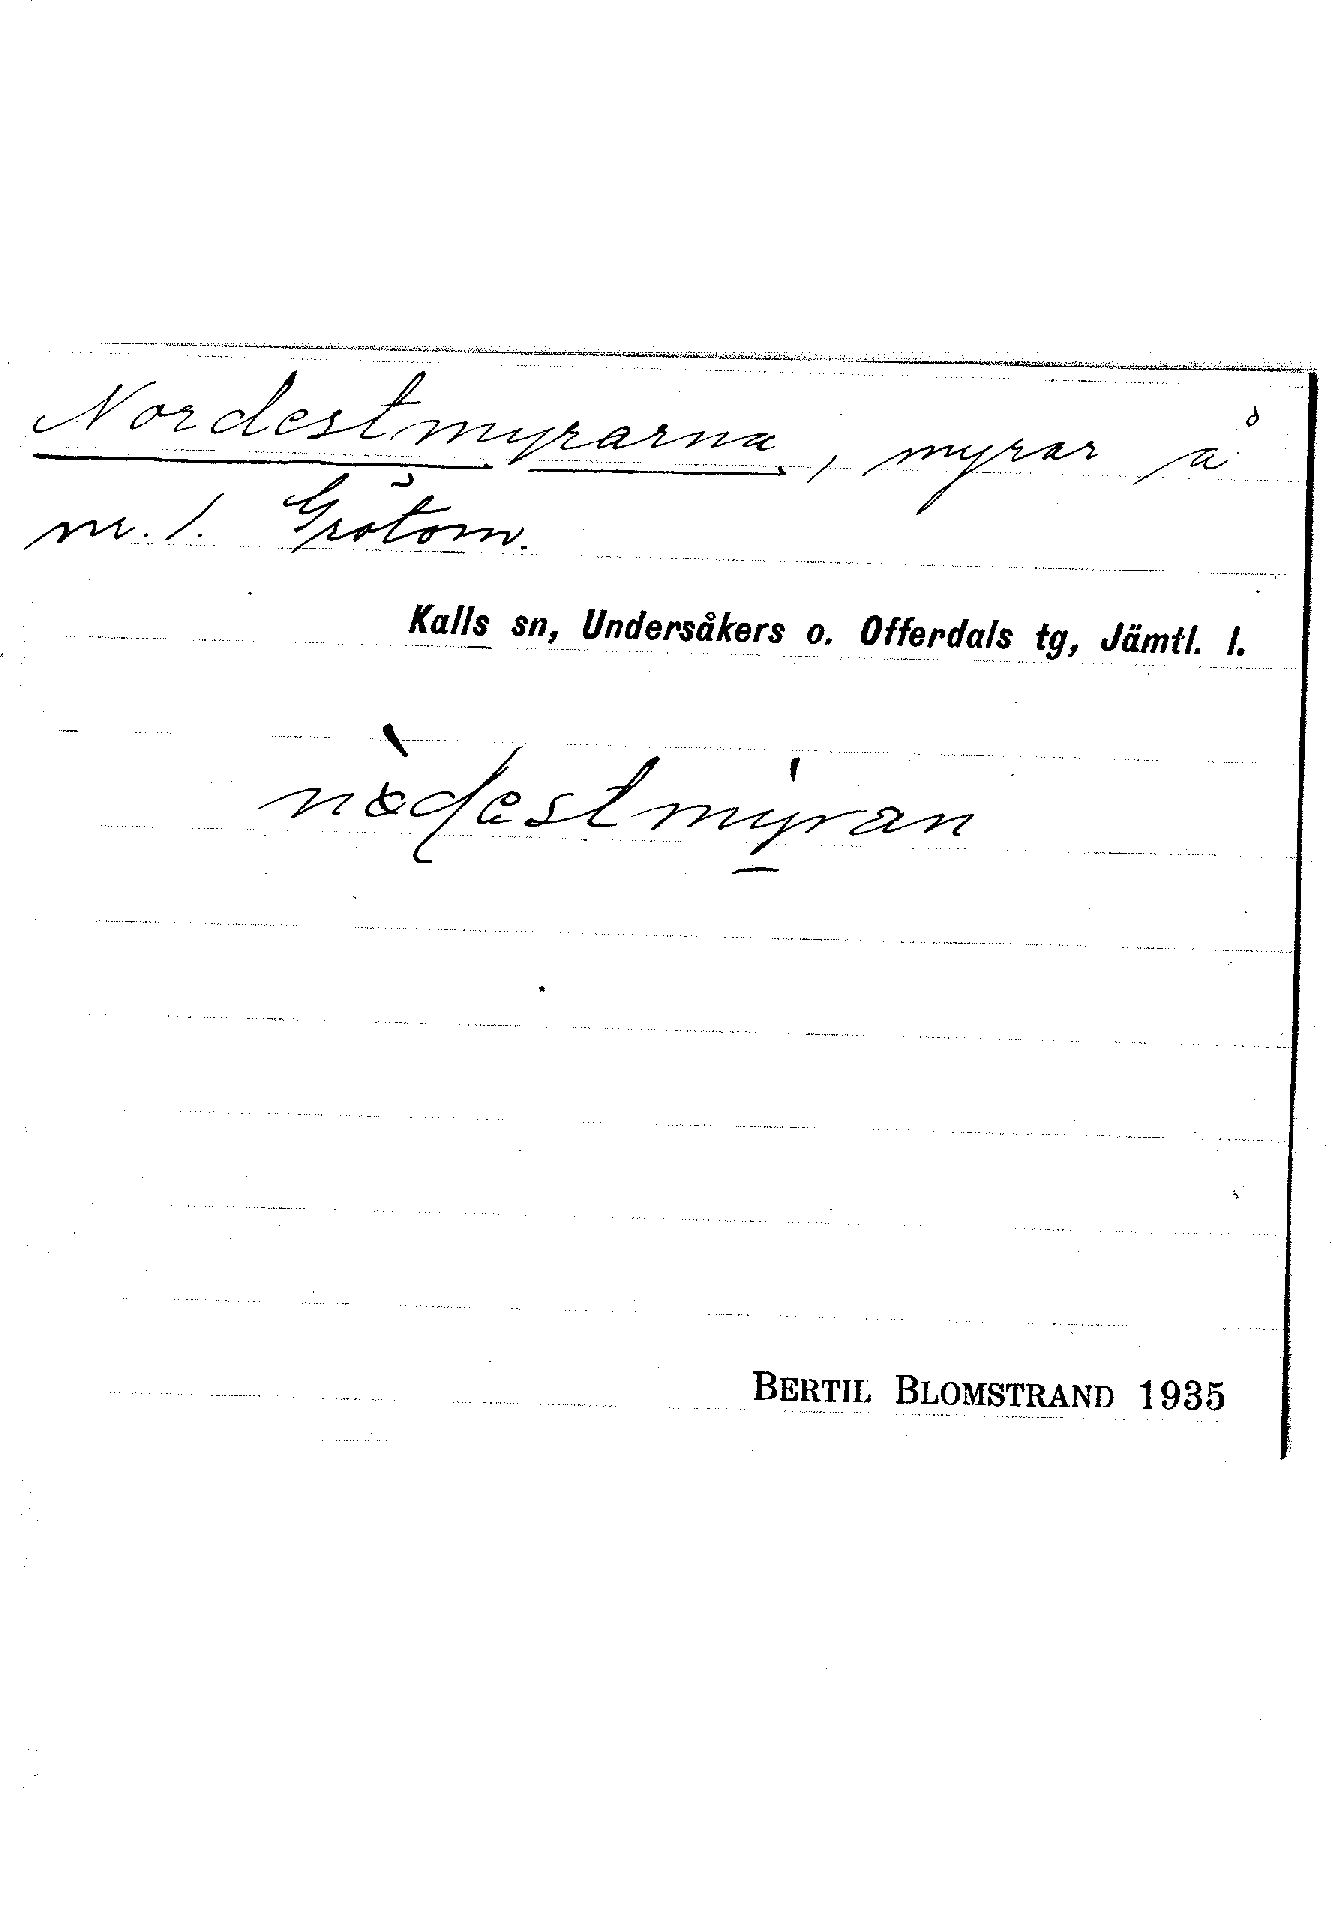 Nordestmyrarna, myrar å
nr. 1. Grötom.
Kalls sn, Undersåkers o. Offerdals tg, Jämtl. l.
BERTIL BLOMSTRAND 1935